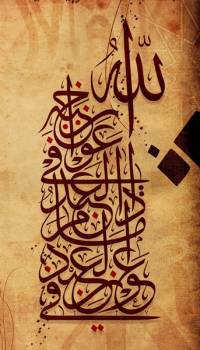 الله
في عون العبد
ما دام
العبد
في عون أخيه